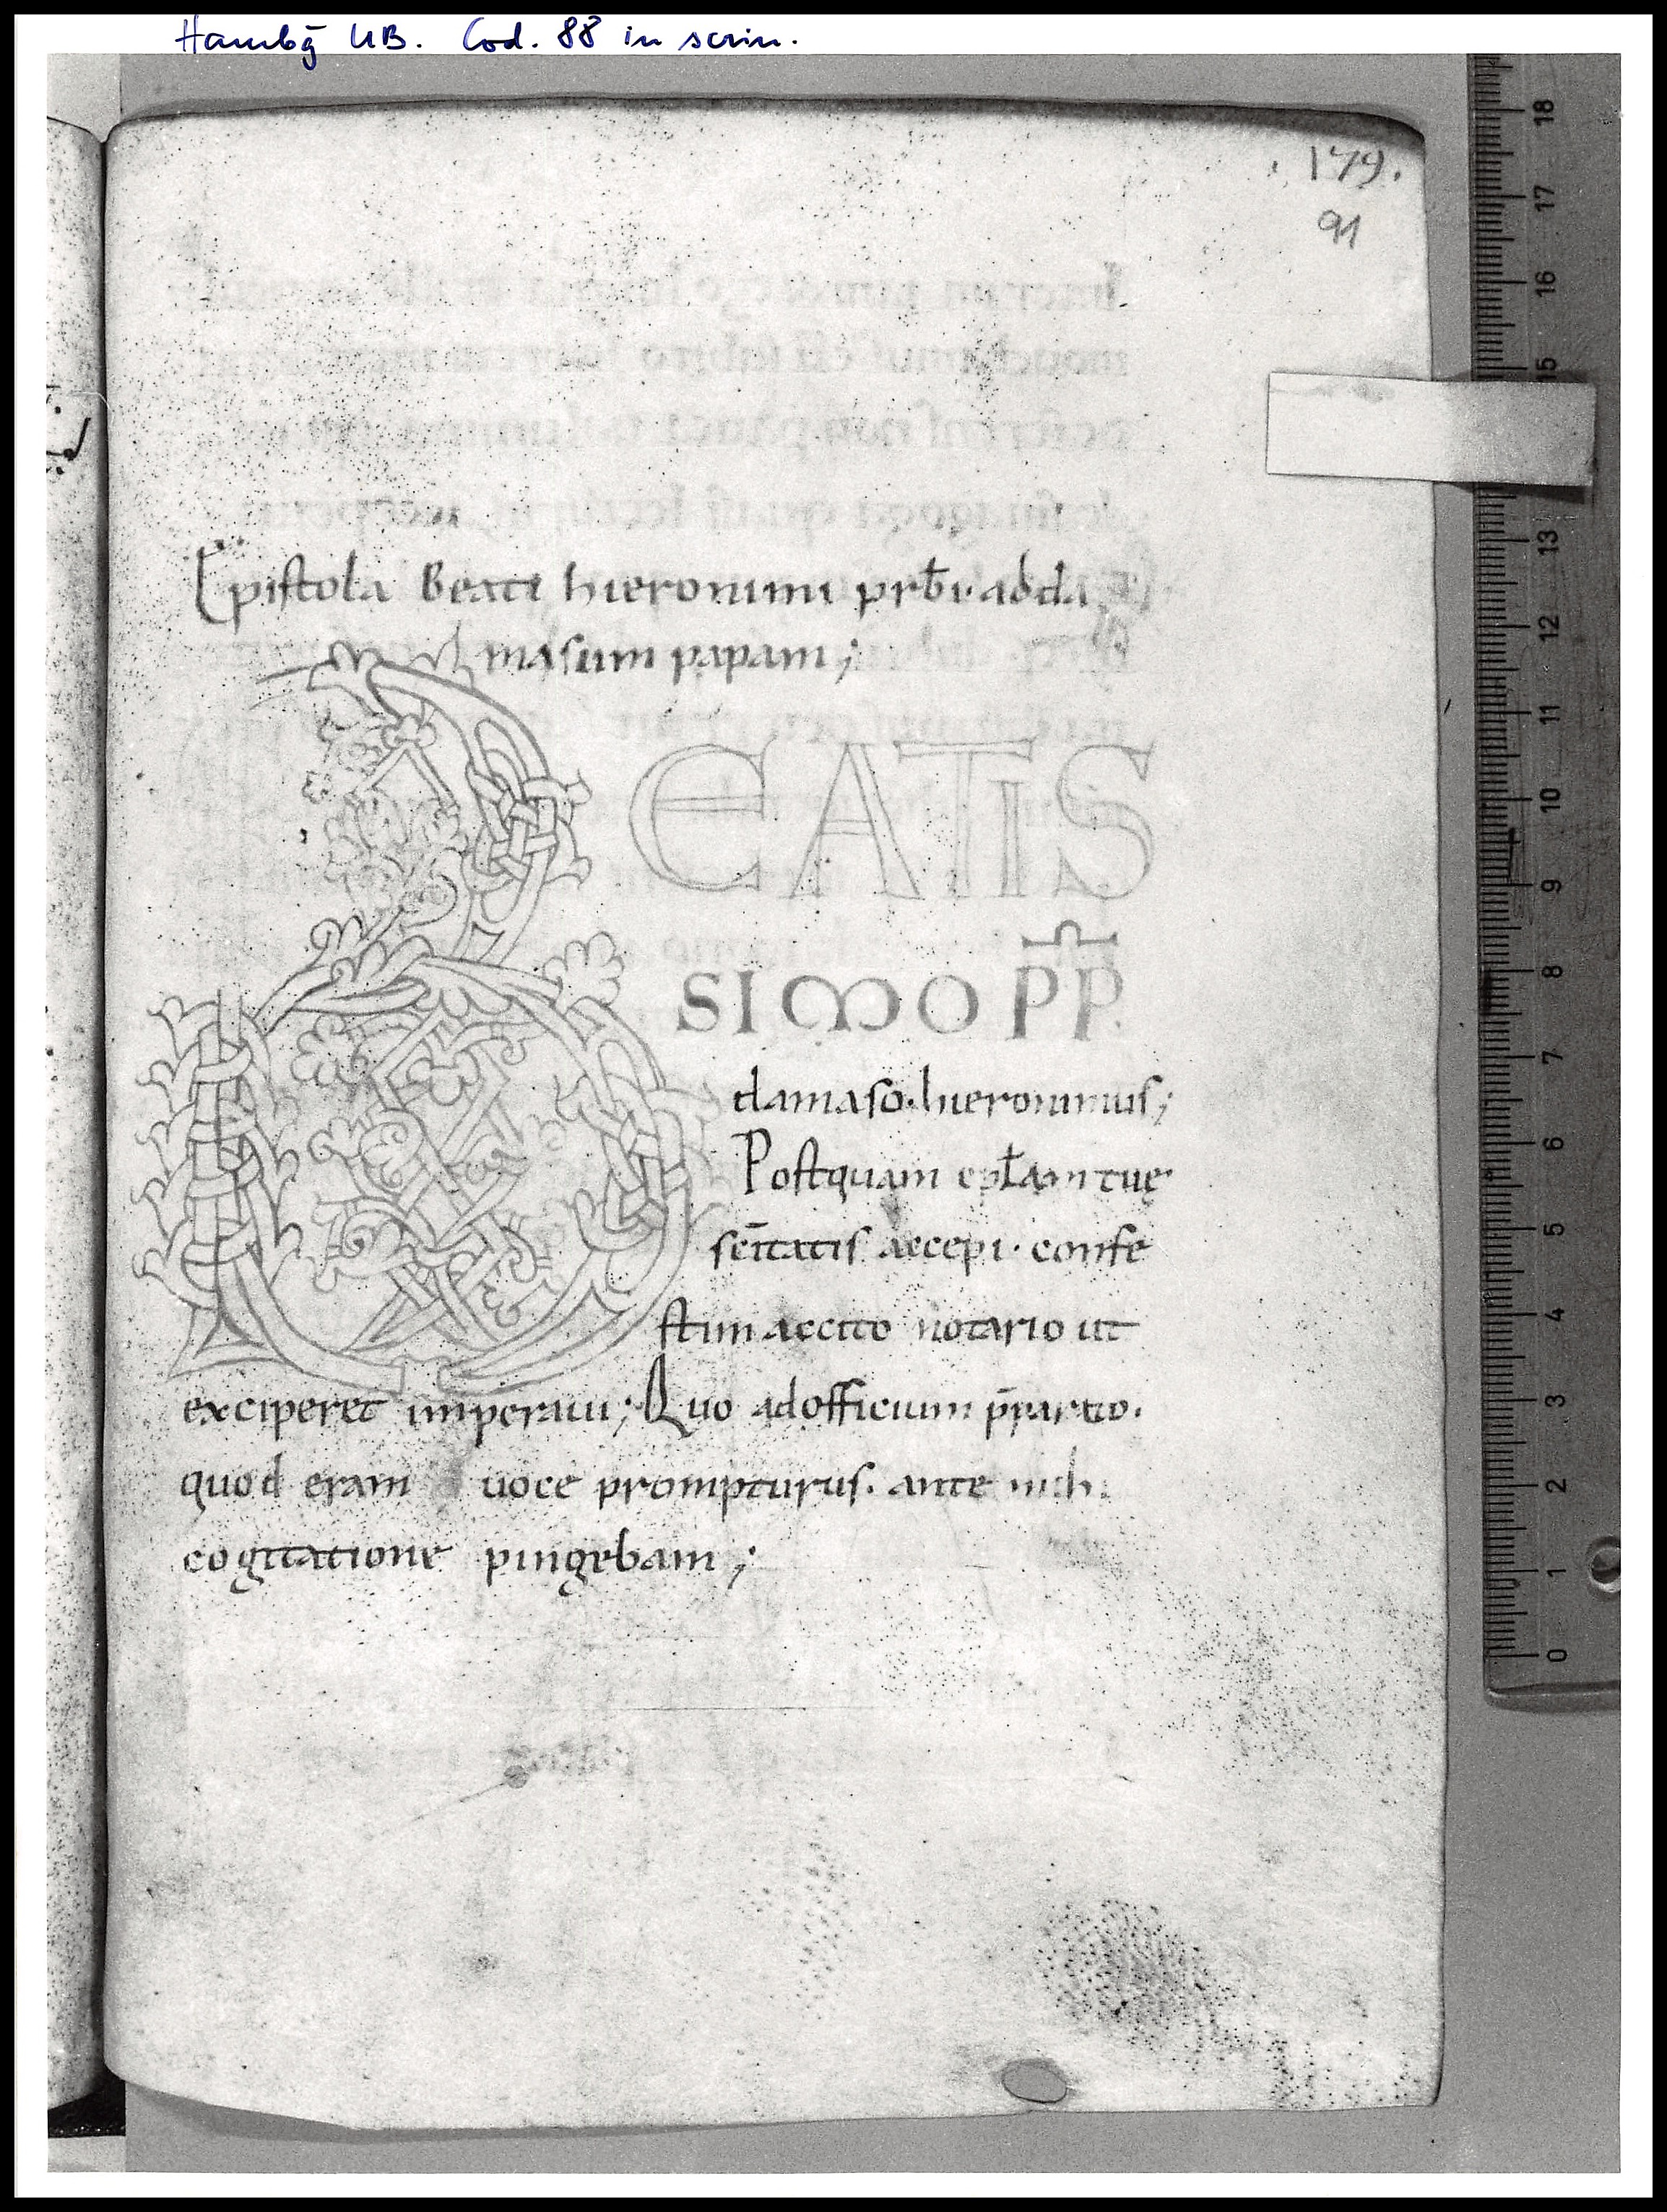 Hambg UB. Cod. 88 in scrin.
179.
91
Epistola Beati hieronimi prƀi· adda
masum papam;
BEATIS
SIMO PP
damaso· hieronimus;
Postquam epƚam tuę
sc̄itatis accepi· confe
stim accito notario ut
exciperet imperaui; Quo adofficium p̄parato.
quod eram uoce prompturus. ante mih
cogitatione pingebam;
18
17
16
15
13
12
11
10
9
8
7
6
5
4
3
2
1
0